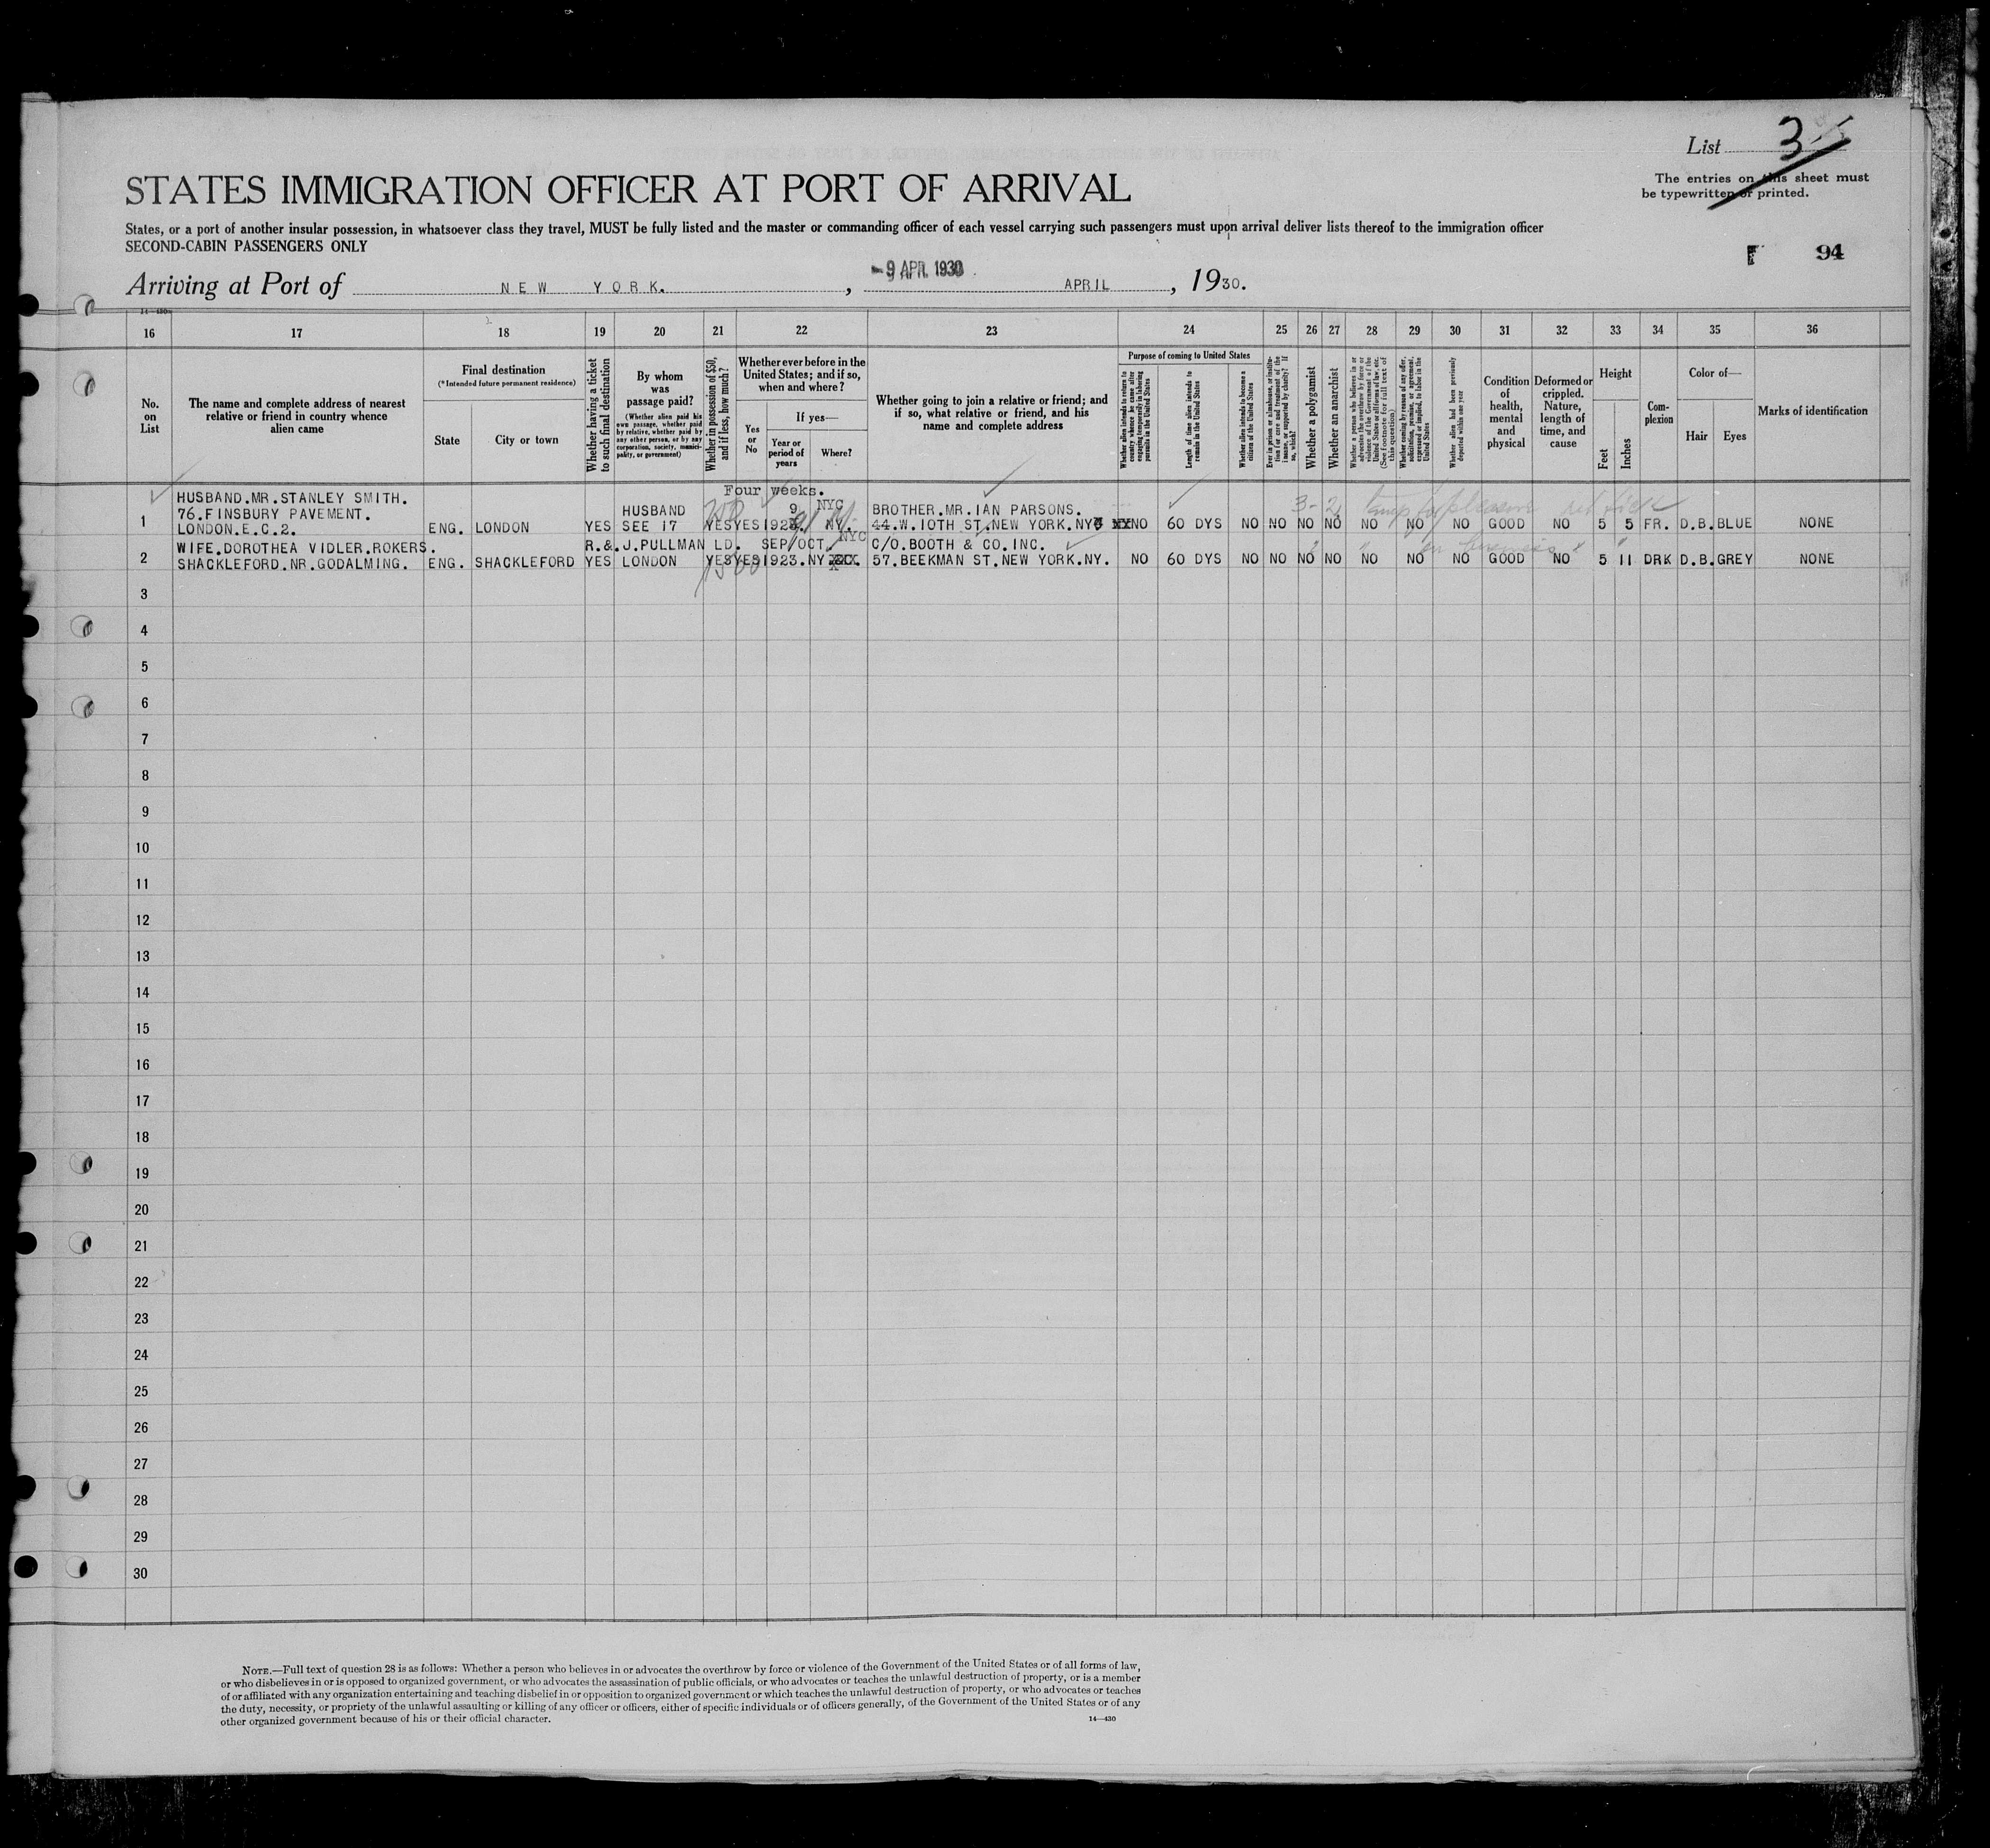 List 3
The entries on this sheet must
be typewritten or printed.
STATES IMMIGRATION OFFICER AT PORT OF ARRIVAL
States, or a port of another insular possession, in whatsoever class they travel, MUST be fully listed and the master or commanding officer of each vessel carrying such passengers must upon arrival deliver lists thereof to the immigration officer
SECOND-CABIN PASSENGERS ONLY
F 94
-9 APR. 1930
Arriving at Port of NEW YORK. , APRIL , 1930.
14—430
16 17 18 19 20 21 22 23 24 25 26 27 28 29 30 31 32 33 34 35 36
No.
on
List
The name and complete address of nearest
relative or friend in country whence
alien came
Final destination
(*Intended future permanent residence)
State
City or town
Whether having a ticket
to such final destination
By whom
was
passage paid?
(Whether alien paid his
own passage, whether paid
by relative, whether paid by
any other person, or by any
corporation, society, munici-
pality, or government)
Whether in possession of $50,
and if less, how much?
Whether ever before in the
United States; and if so,
when and where?
Yes
or
No
If yes—
Year or
period of
years
Where?
Whether going to join a relative or friend; and
if so, what relative or friend, and his
name and complete address
Purpose of coming to United States
Whether alien intends to return to
country whence he came after
engaging temporarily in laboring
pursuits in the United States
Length of time alien intends to
remain in the United States
Whether alien intends to become a
citizen of the United States
Ever in prison or almshouse, or institu-
tion for care and treatment of the
insane, or supported by charity? If
so, which?
Whether a polygamist
Whether an anarchist
Whether a person who believes in or
advocates the overthrow by force or
violence of the Government of the
United States or all forms of law, etc.
(See footnote for full text of
this question.)
Whether coming by reason of any offer,
solicitation, promise, or agreement,
expressed or implied, to labor in the
United States
Whether alien had been previously
deported within one year
Condition
of
health,
mental
and
physical
Deformed or
crippled.
Nature,
length of
time, and
cause
Height
Feet
Inches
Com-
plexion
Color of—
Hair Eyes
Marks of identification
Four weeks.
HUSBAND.MR.STANLEY SMITH.
76.FINSBURY PAVEMENT. HUSBAND 9 NYC BROTHER.MR.IAN PARSONS. 3-2 temp for pleasure
1 LONDON.E.C.2. ENG. LONDON YES SEE 17 YES YES 192 . NY. 44.W.10TH ST.NEW YORK.NY NO 60 DYS NO NO NO NO NO NO NO GOOD NO 5 5 FR. D.B. BLUE NONE
WIFE.DOROTHEA VIDLER.ROKERS. R.& J.PULLMAN LD. SEP/OCT NYC C/O.BOOTH & CO.INC. on business
2 SHACKLEFORD.NR.GODALMING. ENG. SHACKLEFORD YES LONDON YES YES 1923. NY 57.BEEKMAN ST.NEW YORK.NY. NO 60 DYS NO NO NO NO NO NO NO GOOD NO 5 11 DRK D.B. GREY NONE
3
4
5
6
7
8
9
10
11
12
13
14
15
16
17
18
19
20
21
22
23
24
25
26
27
28
29
30
NOTE.—Full text of question 28 is as follows: Whether a person who believes in or advocates the overthrow by force or violence of the Government of the United States or of all forms of law,
or who disbelieves in or is opposed to organized government, or who advocates the assassination of public officials, or who advocates or teaches the unlawful destruction of property, or is a member
of or affiliated with any organization entertaining and teaching disbelief in or opposition to organized government or which teaches the unlawful destruction of property, or who advocates or teaches
the duty, necessity, or propriety of the unlawful assaulting or killing of any officer or officers, either of specific individuals or of officers generally, of the Government of the United States or of any
other organized government because of his or their official character.
14—430